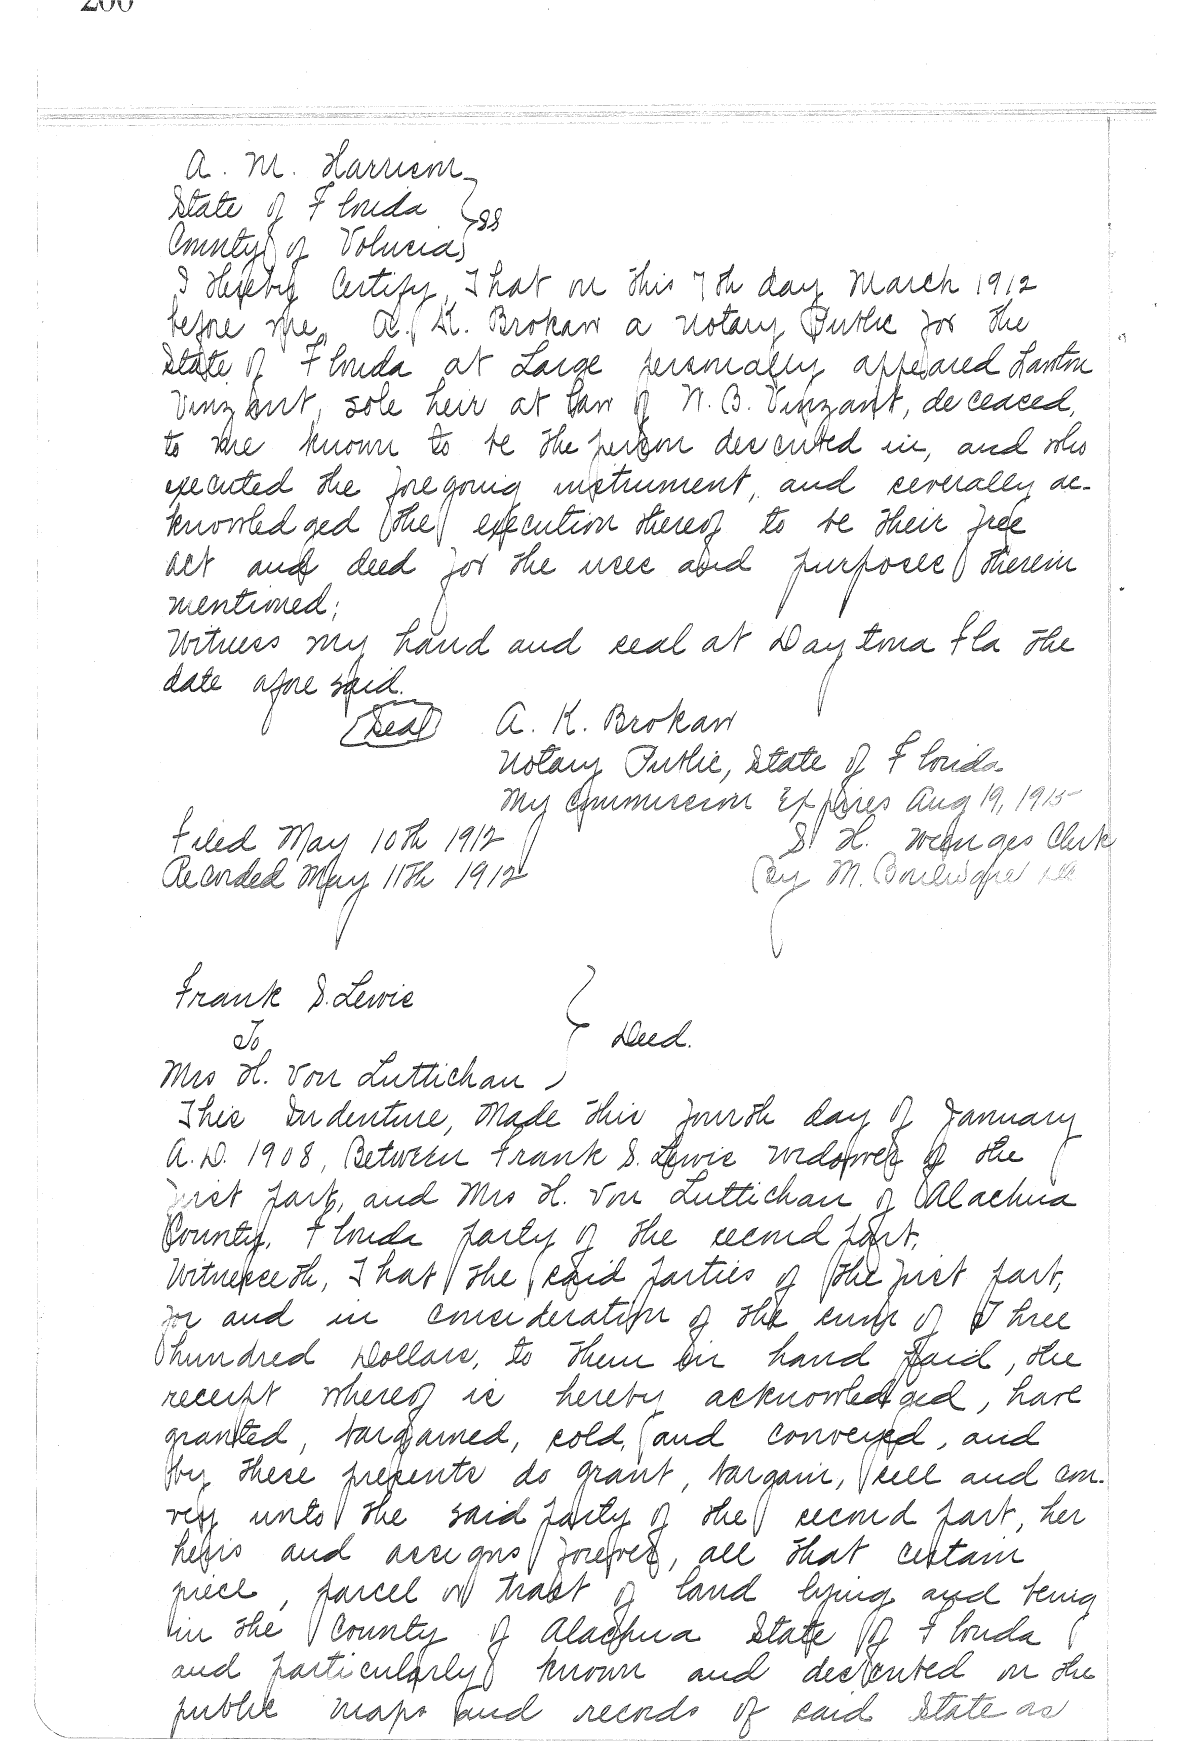 200
A. M. Harrison
State of Florida
} SS
County of Volucia
I Hereby Certify, That on this 7th day March 1912
before me, A. K. Brokaw a Notary Public for the
State of Florida at Large personally appeared Lawton
Vinzant, sole heir at law of W. B. Vinzant, deceased,
to me known to be the person described in, and who
executed the foregoing instrument, and severally ac-
knowledged the execution thereof to be their free
act and deed for the uses and purposes therein
mentioned;
Witness my hand and seal at Daytona Fla the
date afore said.
(Seal) A. K. Brokaw
Notary Public, State of Florida
My Commission Expires Aug 19, 1915
Filed May 10th 1912 S. H. Wienges Clerk
Recorded May 11th 1912 By M.
Frank S. Lewis
To } Deed.
Mrs H. Von Luttichau
This Indenture, Made this fourth day of January
A.D. 1908, Between Frank S. Lewis widower of the
first part, and Mrs H. Von Luttichau of Alachua
County, Florida party of the second part,
Witnesseth, That the said parties of the first part,
for and in consideration of the sum of Three
hundred Dollars, to them in hand paid, the
receipt whereof is hereby acknowledged, have
granted, bargained, sold, and conveyed, and
by these presents do grant, bargain, sell and con-
vey unto the said party of the second part, her
heirs and assigns forever, all that certain
piece, parcel or tract of land lying and being
in the County of Alachua State of Florida
and particularly known and described on the
public maps and records of said State as